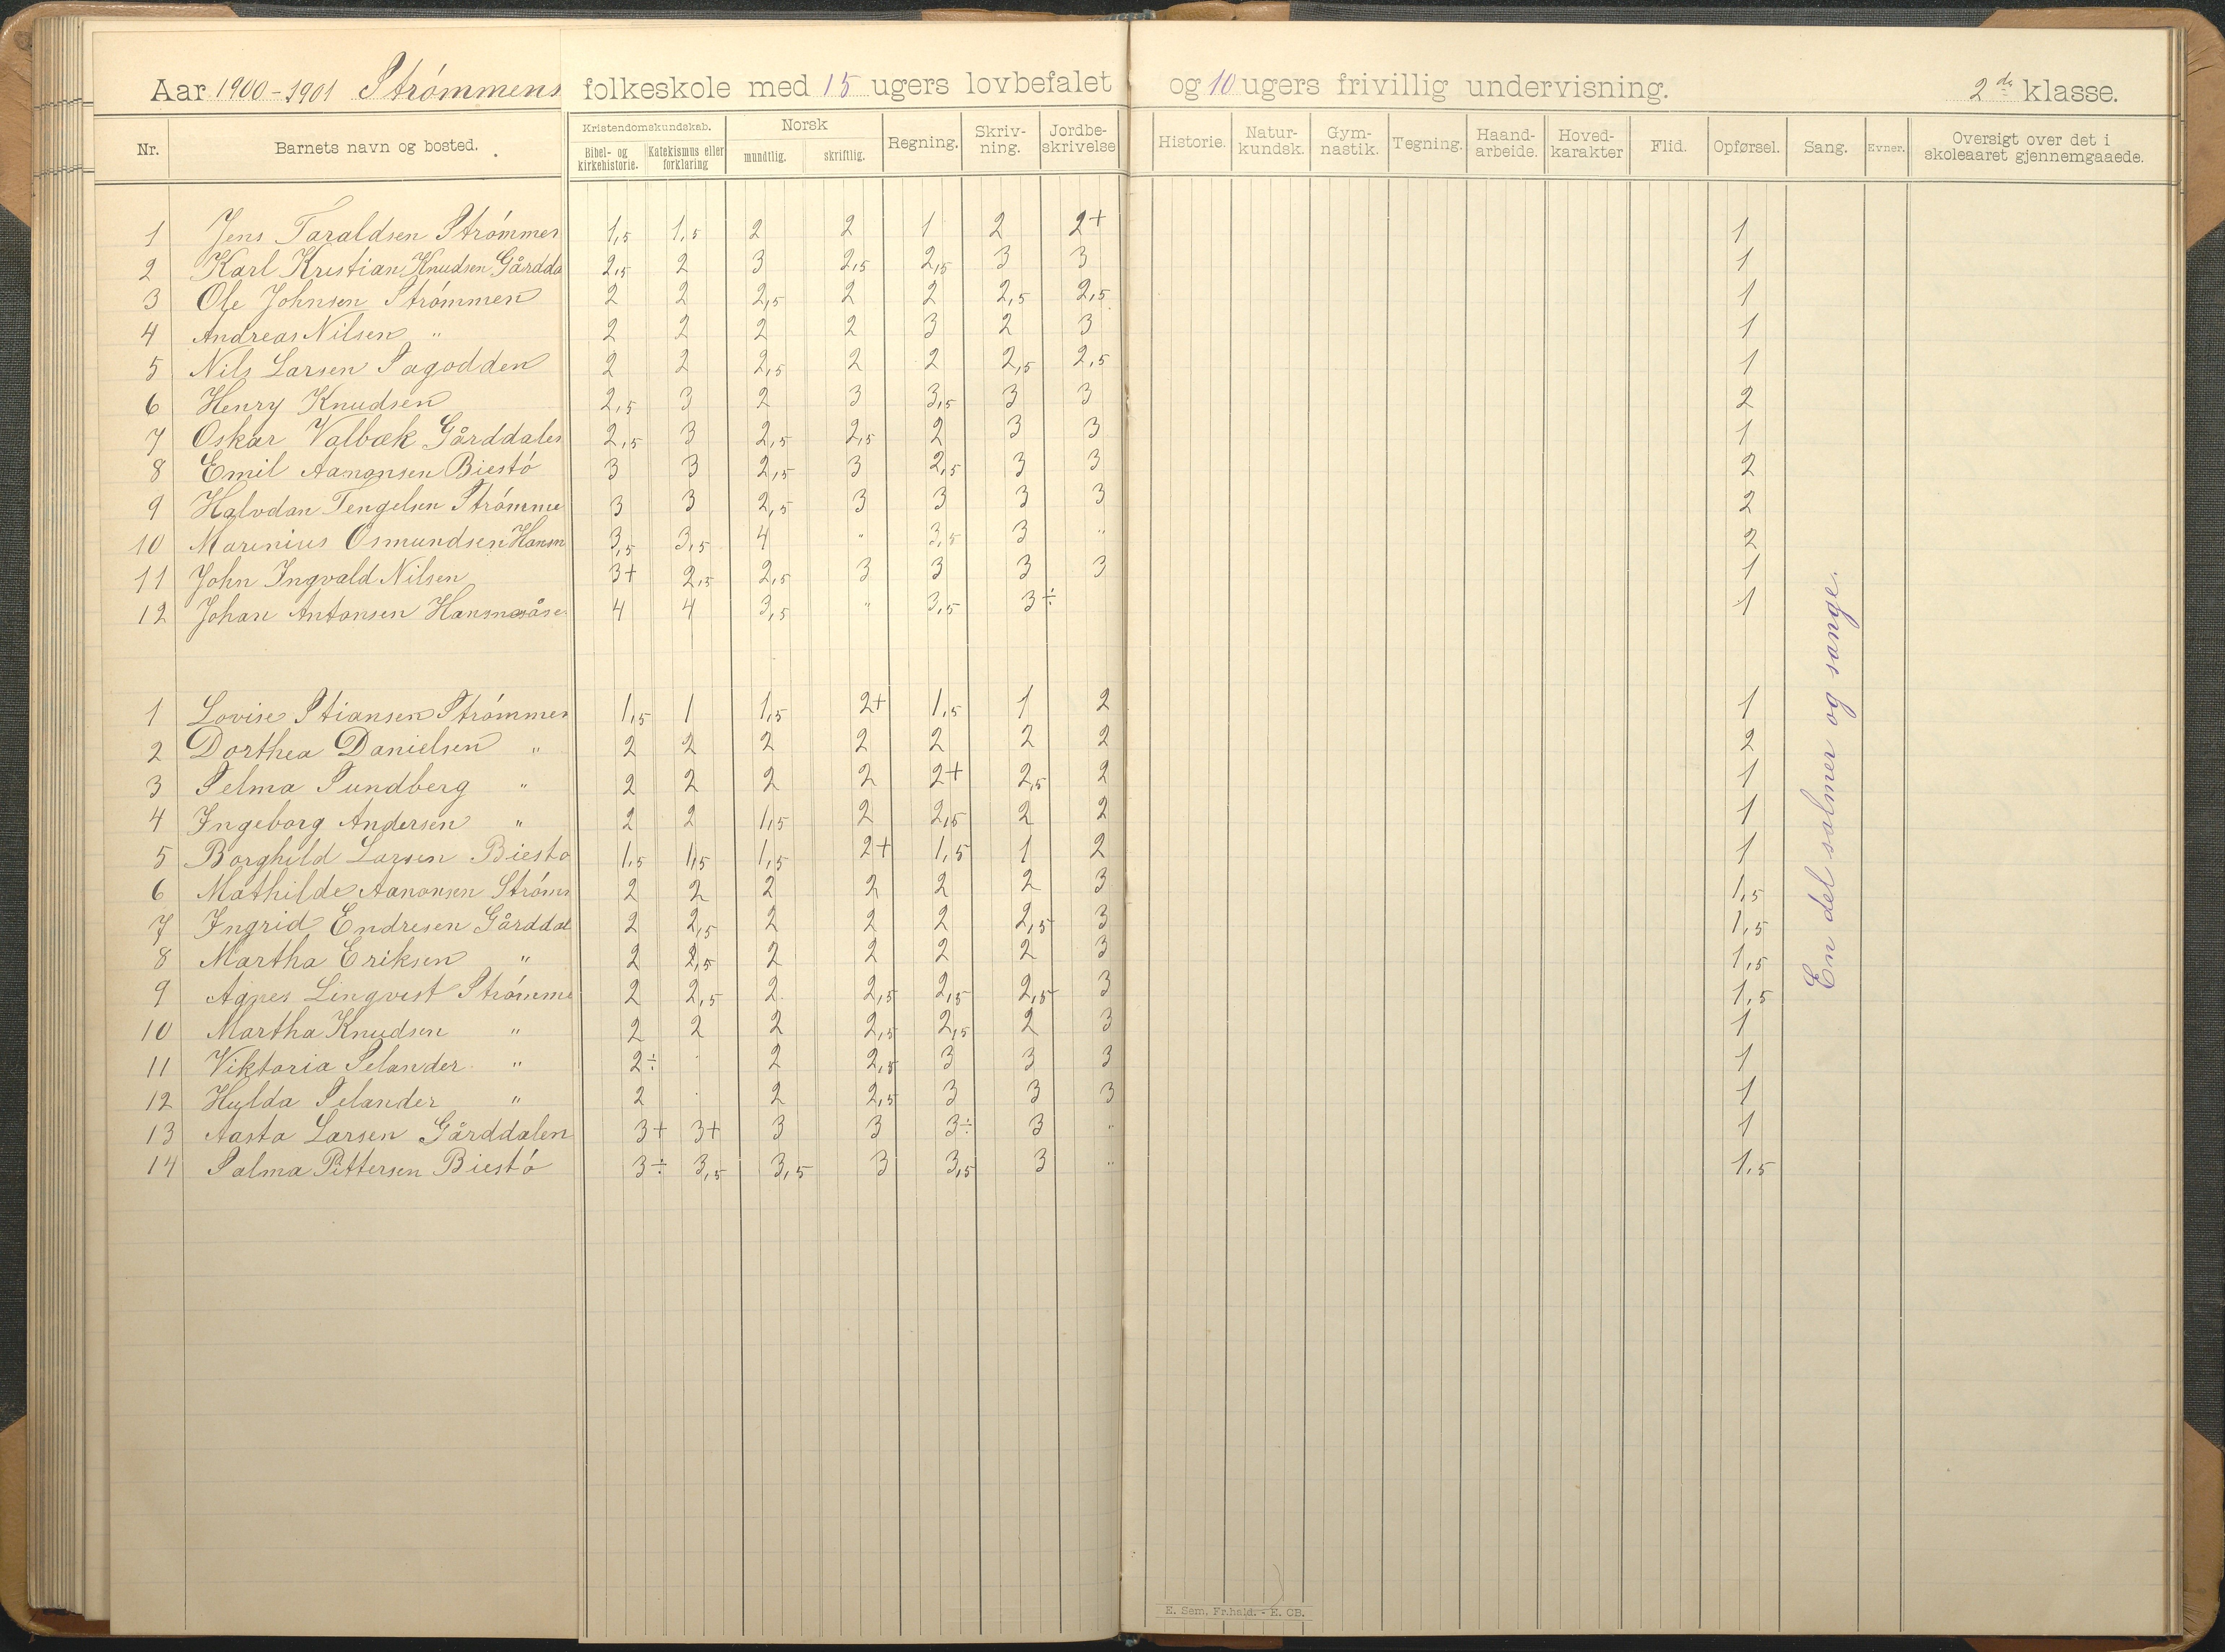 Aar 1900-1901 Strømmens folkeskole med 15 ugers lovbefalet og 10 ugers frivillig undervisning. 2de klasse.
Nr. Barnets navn og bosted. Kristendomskundskab. Bibel- og kirkehistorie. Katekismus eller forklaring Norsk mundtlig. skriftlig. Regning. Skriv-ning. Jordbe-skrivelse Historie. Natur-kundsk. Gym-nastik. Tegning. Haand-arbeide. Hoved-karakter Flid. Opførsel. Sang. Evner. Oversigt over det i skoleaaret gjennemgaaede.
1 Jens Taraldsen Strømmen 1,5 1,5 2 2 1 2 2+ 1
2 Karl Kristian Knudsen Gårdda 2,5 2 3 2,5 2,5 3 3 1
3 Ole Johnsen Strømmen 2 2 2,5 2 2 2,5 2,5 1
4 Andreas Nilsen " 2 2 2 2 3 2 3 1
5 Nils Larsen Sagodden 2 2 2,5 2 2 2,5 2,5 1
6 Henry Knudsen 2,5 3 2 3 3,5 3 3 2
7 Oskar Valbæk Gårddalen 2,5 3 2,5 2,5 2 3 3 1
8 Emil Aanonsen Biestø 3 3 2,5 3 2,5 3 3 2
9 Halvdan Tengelsen Strømme 3 3 2,5 3 3 3 3 2
10 Marenius Osmundsen Hansn 3,5 3,5 4 " 3,5 3 " 2
11 John Ingvald Nilsen 3+ 2,5 2,5 3 3 3 3 1
12 Johan Antonsen Hansnesåse 4 4 3,5 " 3,5 3÷ 1
1 Lovise Stiansen Strømmen 1,5 1 1,5 2+ 1,5 1 2 1
2 Dorthea Danielsen " 2 2 2 2 2 2 2 2
3 Selma Sundberg " 2 2 2 2 2+ 2,5 2 1
4 Ingeborg Andersen " 2 2 1,5 2 2,5 2 2 1
5 Borghild Larsen Biestø 1,5 1,5 1,5 2+ 1,5 1 2 1
6 Mathilde Aanonsen Strøm 2 2 2 2 2 2 3 1,5
7 Ingrid Endresen Gårddal 2 2,5 2 2 2 2,5 3 1,5
8 Martha Eriksen " 2 2,5 2 2 2 2 3 1,5
9 Agnes Lingvist Strømme 2 2,5 2 2,5 2,5 2,5 3 1,5
10 Martha Knudsen " 2 2 2 2,5 2,5 2 3 1
11 Viktoria Selander " 2÷ 2 2,5 3 3 3 1
12 Hulda Selander " 2 2 2,5 3 3 3 1
13 Aasta Larsen Gårddalen 3+ 3+ 3 3 3÷ 3 " 1
14 Salma Pettersen Biestø 3÷ 3,5 3,5 3 3,5 3 " 1,5
En del salmer og sange.
E. Sem, Fr.hald. - E. CB.